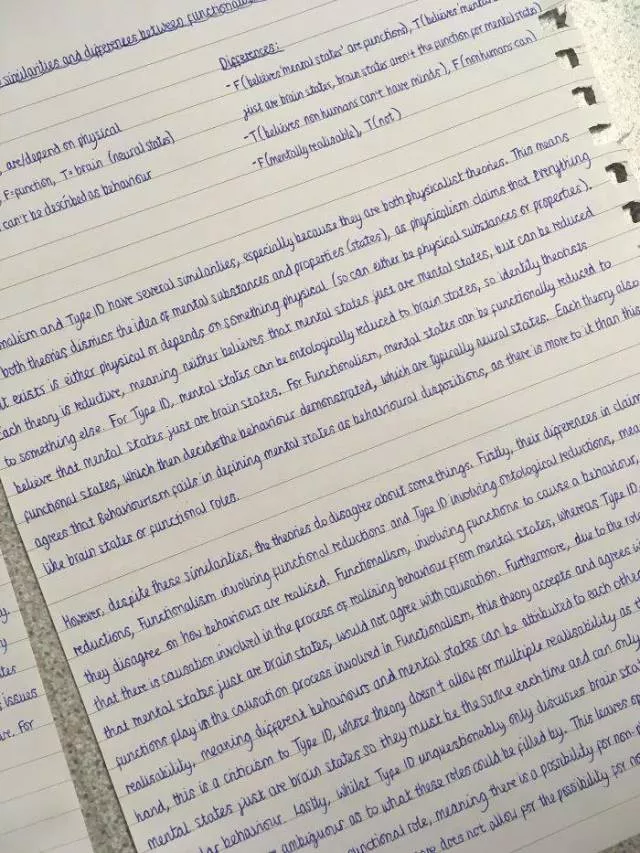 similarities and differences between functionalis
Differences:
-F(believes 'mental states' are functions), T(believes 'mental
just are brain states, brain states aren't the function for mental states)
-T(believes non humans can't have minds), F(nonhumans can)
-F(mentally realisable), T(not)
are/depend on physical
F=function, T=brain (neural states)
can't be described as behaviour
nalism and Type ID have several similarities, especially because they are both physicalist theories. This means
both theories dismiss the idea of mental substances and properties (states), as physicalism claims that everything
t exists is either physical or depends on something physical (so can either be physical substances or properties).
Each theory is reductive, meaning neither believes that mental states just are mental states, but can be reduced
to something else. For Type ID, mental states can be ontologically reduced to brain states, so identity theorists
believe that mental states just are brain states. For Functionalism, mental states can be functionally reduced to
functional states, which then decides the behaviour demonstrated, which are typically neural states. Each theory also
agrees that Behaviourism fails in defining mental states as behavioural dispositions, as there is more to it than this
like brain states or functional roles.
However, despite these similarities, the theories do disagree about some things. Firstly, their differences in claim
reductions, Functionalism involving functional reductions and Type ID involving ontological reductions, mea
they disagree on how behaviours are realised. Functionalism, involving functions to cause a behaviour,
that there is causation involved in the process of realising behaviour from mental states, whereas Type ID,
that mental states just are brain states, would not agree with causation. Furthermore, due to the role
functions play in the causation process involved in Functionalism, this theory accepts and agrees wi
realisability, meaning different behaviours and mental states can be attributed to each other
hand, this is a criticism to Type ID, whose theory doesn't allow for multiple realisability as th
mental states just are brain states so they must be the same each time and can only
lar behaviour. Lastly, whilst Type ID unquestionably only discusses brain stat
ambiguous as to what these roles could be filled by. This leaves
functional role, meaning there is a possibility for non-
does not allow for the possibility for no
issues
For